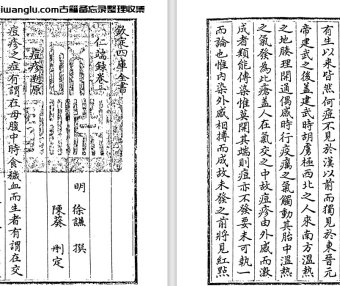 iwanglu.com古籍备忘录整理收集
欽定四庫全書
仁端錄卷一
明 徐謙 撰
陳葵 刪定
痘疹溯源
痘疹之痘有謂在母腹中時食穢血而生者有謂在交
有生以來皆然何痘不見於漢以前而獨見於東晉元
帝建武之後蓋建武時胡虜極西北之人來南方溫熱
之地腠理開通偶感時行疫癘之氣觸動其胎中溫熱
之氣發為此瘡蓋人在氣交之中故痘疹由外感而激
成者類能傳染惟莫開其端則痘亦不發要未可執一
而論也惟內染外感相搏而成故未發之前將見紅點